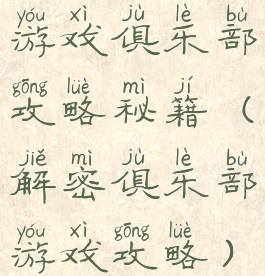 yóu xì jù lè bù
游戏俱乐部
gōng lüè mì jí
攻略秘籍（
jiě mì jù lè bù
解密俱乐部
yóu xì gōng lüè
游戏攻略）